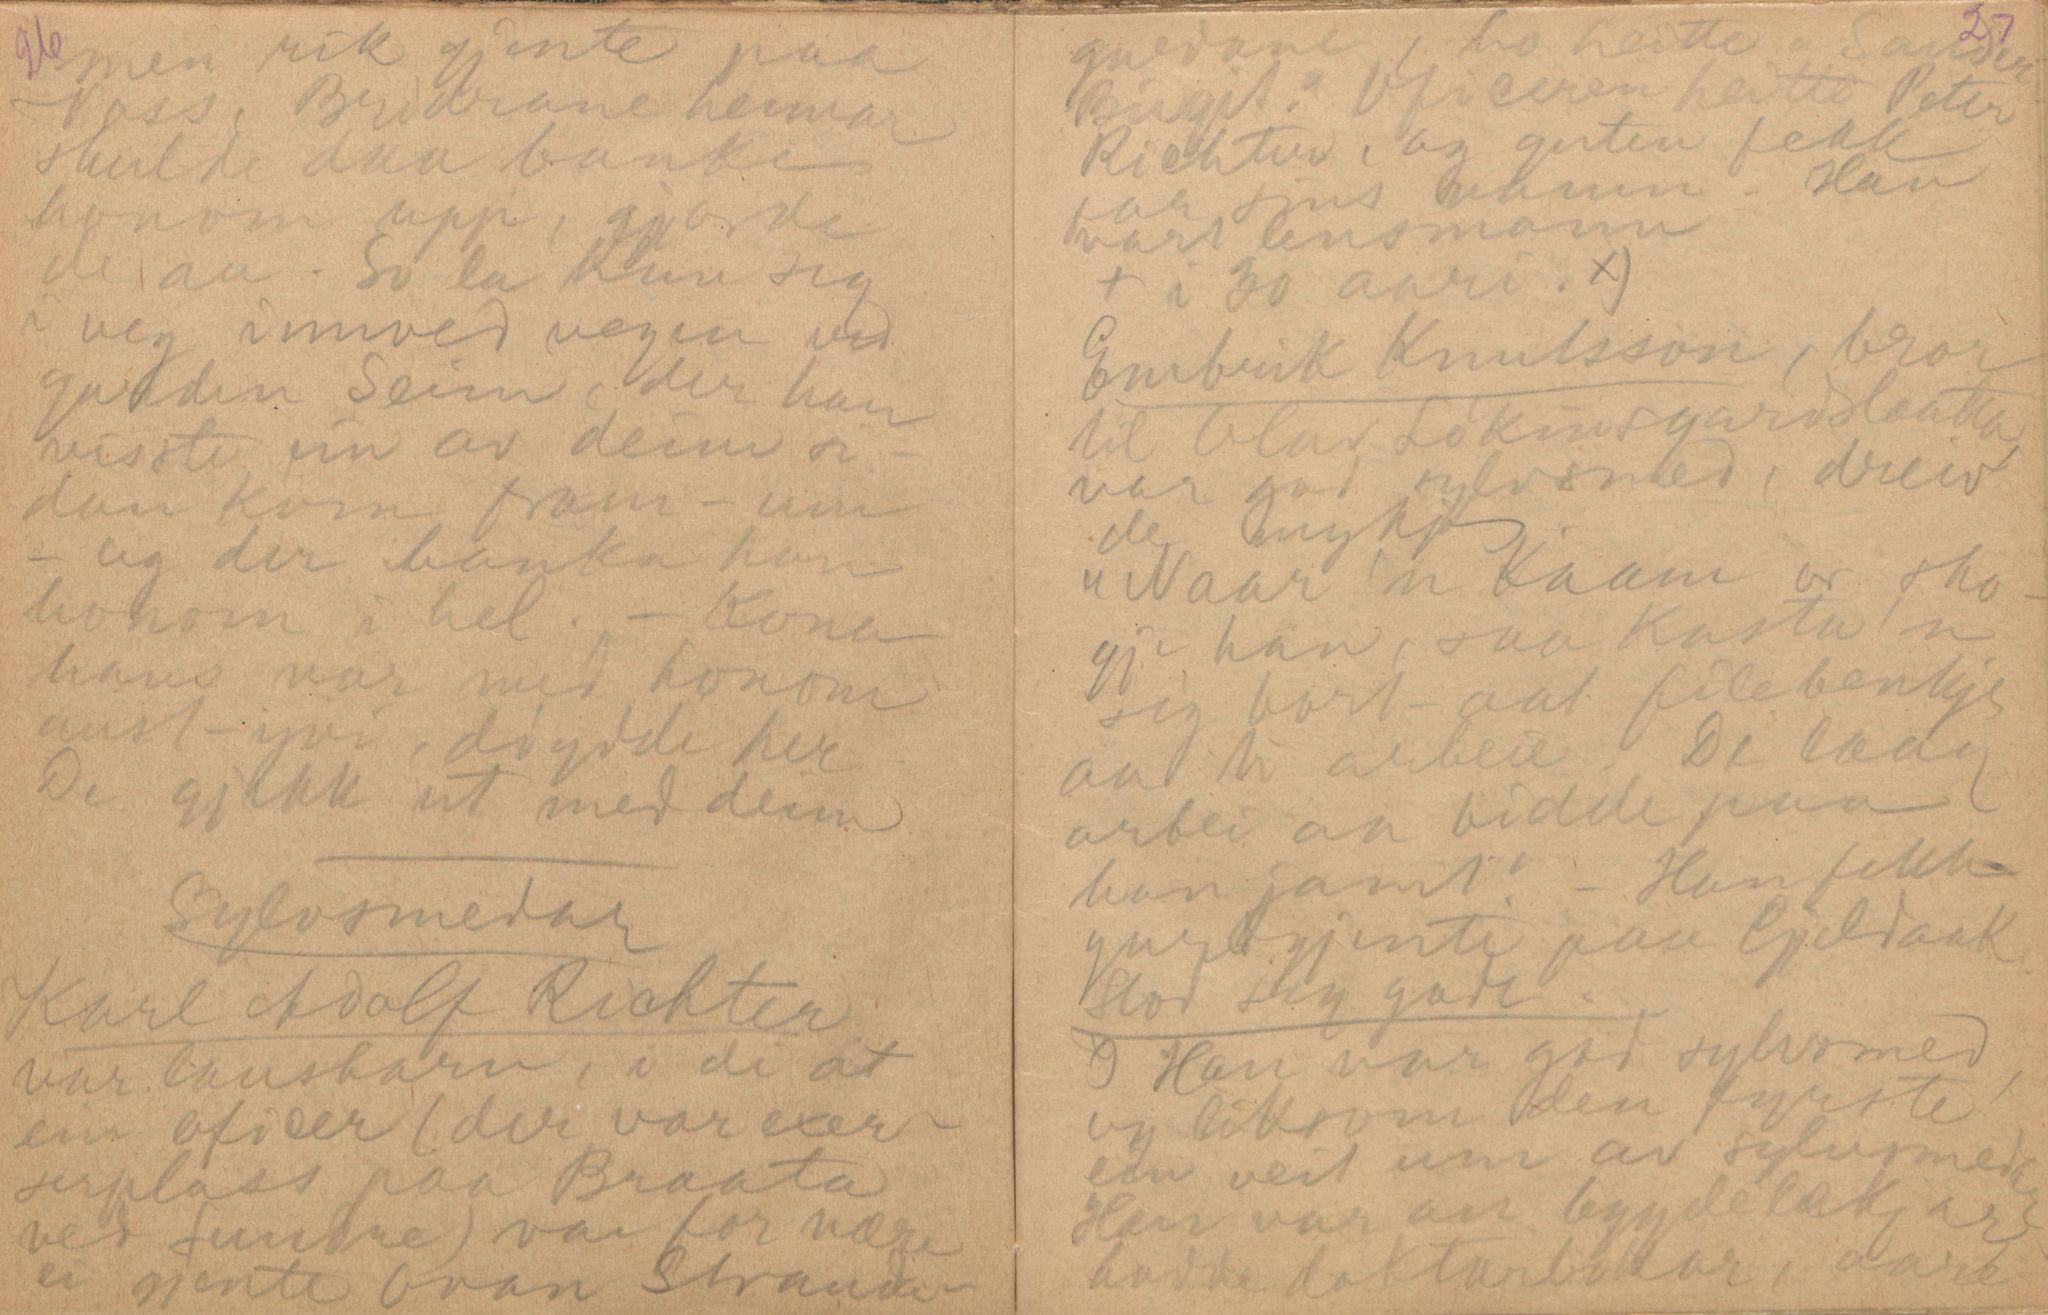 26
men rik gjente paa
Voss. Brødrane hennar
skulde daa banke
honom upp, gjorde
de aa. So la han sig
i veg innved vegen ved
garden Seim, der han
visste ein av deim si-
dan kom fram-um
- og der banka han
honom i hel. - Kona
hans var med honom
aust-yvi, döydde her
De gjekk ut med deim
Sylvsmedar
Karl Adolf Richter
var lausbarn, i di at
ein oficer (der var exer-
serplass paa Braata
ved Sundre) var for nære
ei gjente ovan Strande-
27
gardane, ho heitte "Sander-
Birgit." Oficeren heitte Peter
Richter, og guten fekk
far sins namn. Han
vart lensmann
+ i 30 aari. x)
Embrik Knutsson, bror
til Olav Lökinsgardslaatta,
var god sylvsmed, dreiv
de mykje.
"Naar 'n kaam or sko-
gji han, saa kasta 'n
sig bort-aat filebenkje
aa ti arbeie. De laag
arbei aa bidde paa
han jamt." - Han fekk
gardgjente paa Gjeldaak
Stod seg godt.
x) Han var god sylvsmed,
og liksom den fyrste
ein veit um av sylvsmeda
Han var an bygdelækjare,
hadde doktarbökar, aare